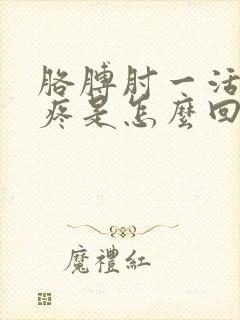 胳膊肘一活
疼是怎麼回
魔禮紅